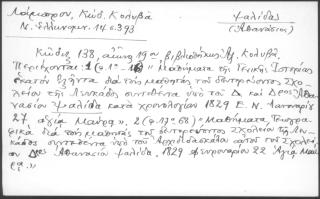 Λάμπρου, Κώδ. Κολυβᾶ
Ν. Ἑλληνομν. 14 σ. 393
Ψαλίδας
(Ἀθανάσιος)
Κῶδιξ 138, αἰῶνος 19ου Βιβλιοθήκης Ἀρ. Κολυβᾶ.
Περιέχονται: 1 (φ. 1α- "Μαθήματα τῆς Γενικῆς Ἱστορίας
ἑκατὸν ἑξῆντα διὰ τοὺς μαθητὰς τοῦ δευτερεύοντος Σχο-
λείου τῆς Λευκάδος συντεθέντα ὑπὸ τοῦ Δ. καὶ Δρος Ἀθα-
νασίου Ψαλίδα κατὰ χρονολογίαν 1829 Ε. Ν. Ἰανουαρίου
27. ἁγία Μαύρα", 2 (φ. 17α 68) "Μαθήματα Γεωγρα-
φικὰ διὰ τοὺς μαθητὰς τοῦ δευτερεύοντος Σχολείου τῆς Λευ-
κάδος συντεθέντα ὑπὸ τοῦ Ἀρχιδιδασκάλου αὐτοῦ τοῦ Σχολεί-
ου Δρος Ἀθανασίου Ψαλίδα. 1829 Φευρουαρίου 22 Ἁγία Μαύ-
ρα"